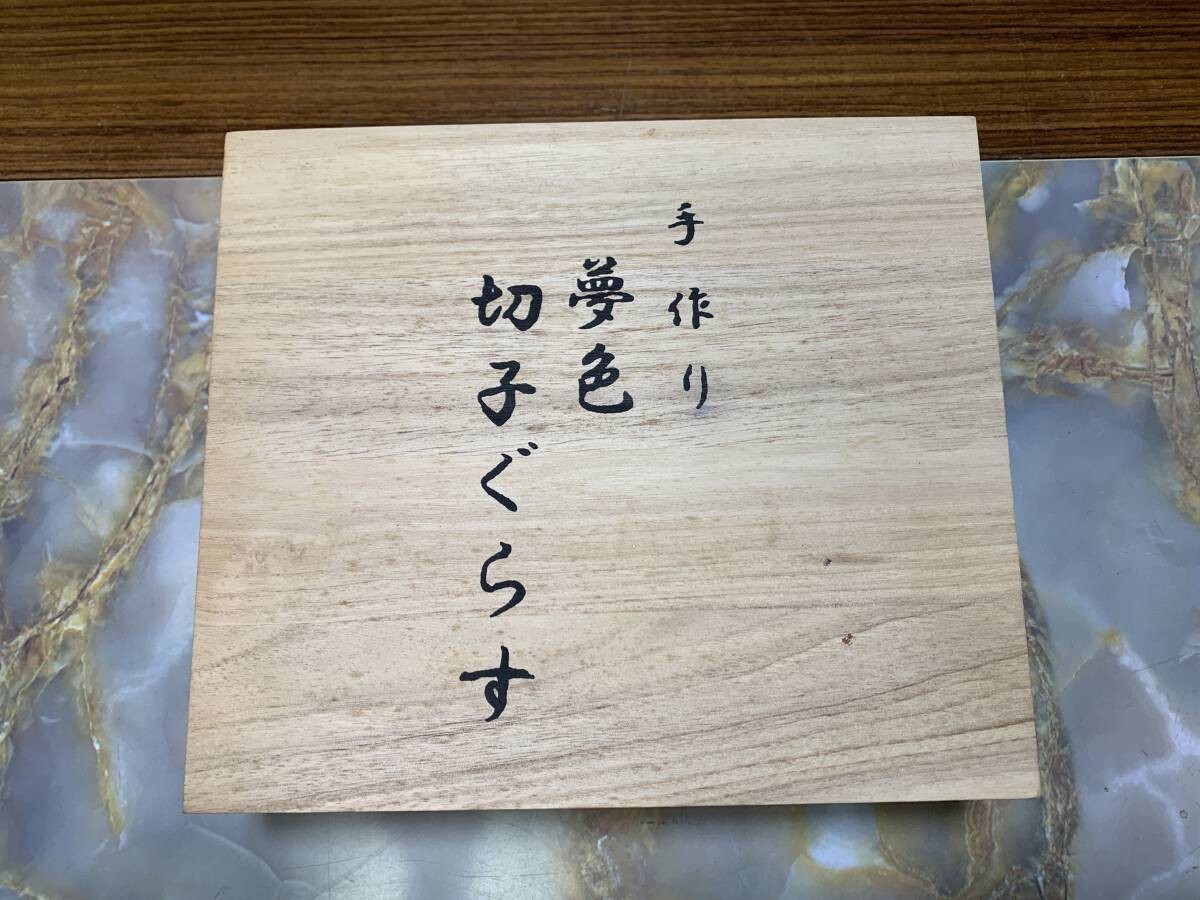 手作り
夢色
切子ぐらす